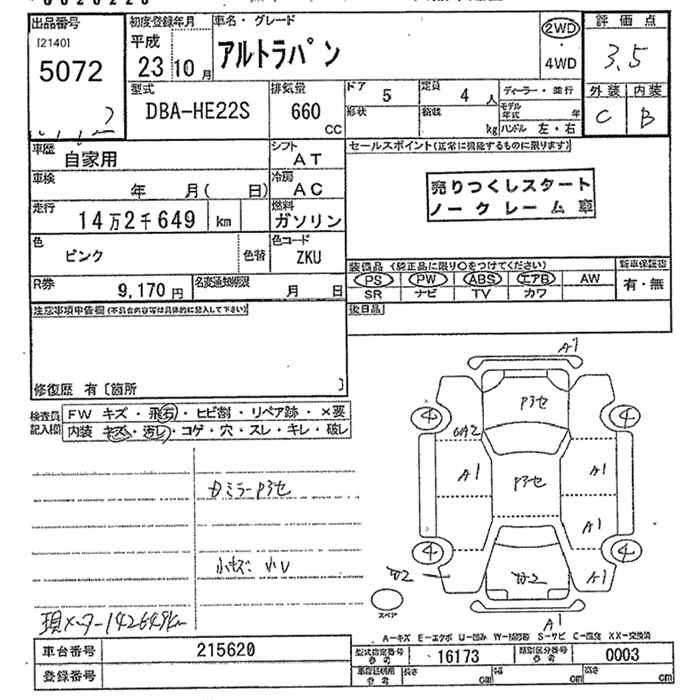 出品番号
[2140]
5072
初度登録年月
平成
23 10月
車名・グレード
アルトラパン
2WD
・
4WD
評価点
3.5
外装 内装
C B
型式
DBA-HE22S
排気量
660
CC
ドア 5
定員 4 人
形状
積載 kg
ディーラー・並行
モデル年式 年
ハンドル 左・右
車歴 自家用
シフト AT
車検 年 月( 日)
冷房 AC
走行 14万2千649 km
燃料 ガソリン
色 ピンク
色替
色コード ZKU
R券 9,170円
名変通知期限 月 日
セールスポイント(正常に機能するものに限ります)
売りつくしスタート
ノークレーム車
装備品 (純正品に限り○をつけてください)
新車保証書
PS PW ABS エアB AW
SR ナビ TV カワ
有・無
後日品
注意事項申告欄(不具合内容等は具体的に記入して下さい)
修復歴 有〔箇所 〕
検査員
記入欄
FW キズ・飛石・ヒビ割・リペア跡・×要
内装 キズ・汚レ・コゲ・穴・スレ・キレ・破レ
142649km
A1
4
4
A1
A1
A1
4
4
A1
A1
スペア
A-キズ E-エクボ U-凹み W-補修跡 S-サビ C-腐食 XX-交換済
車台番号 215620
登録番号
型式指定番号 参考 16173
類別区分番号 参考 0003
車庫証明用 参考
長さ cm
幅 cm
高さ cm